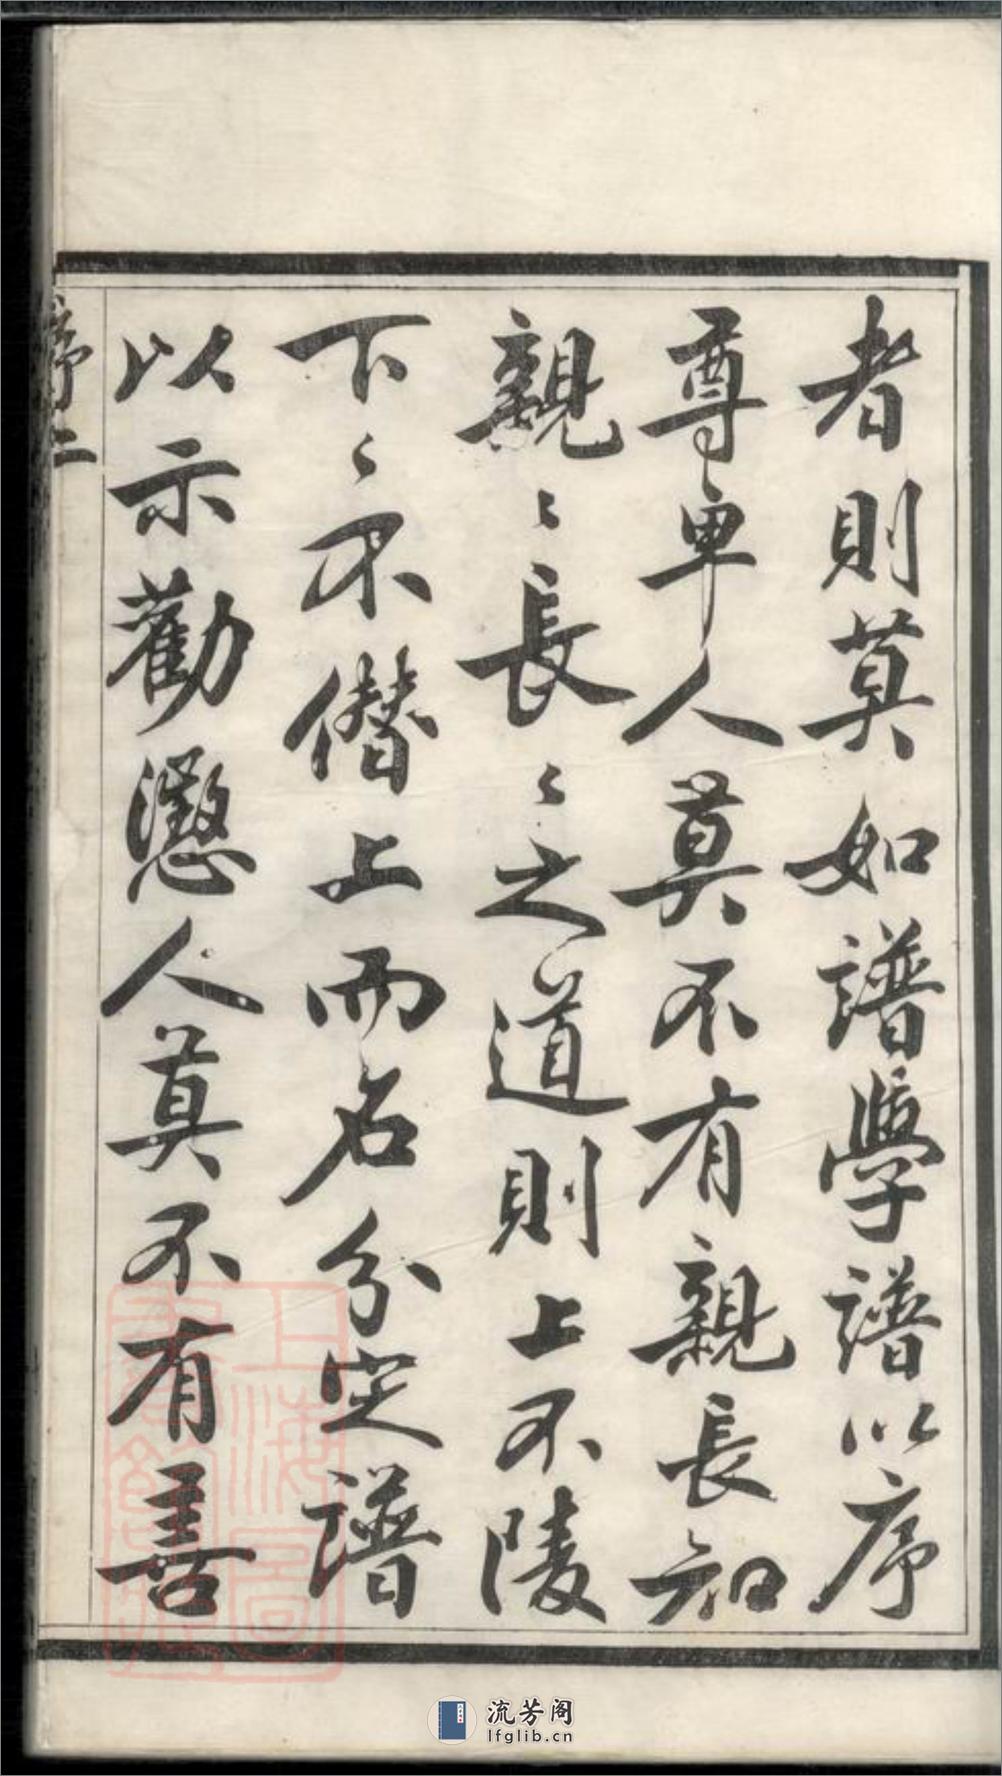 者則莫如譜學譜以序
尊卑人莫不有親長知
親〻長〻之道則上不陵
下〻不僭上而名分定譜
以示勸懲人莫不有善
序二
上海圖
書館藏
流芳阁
lfglib.cn